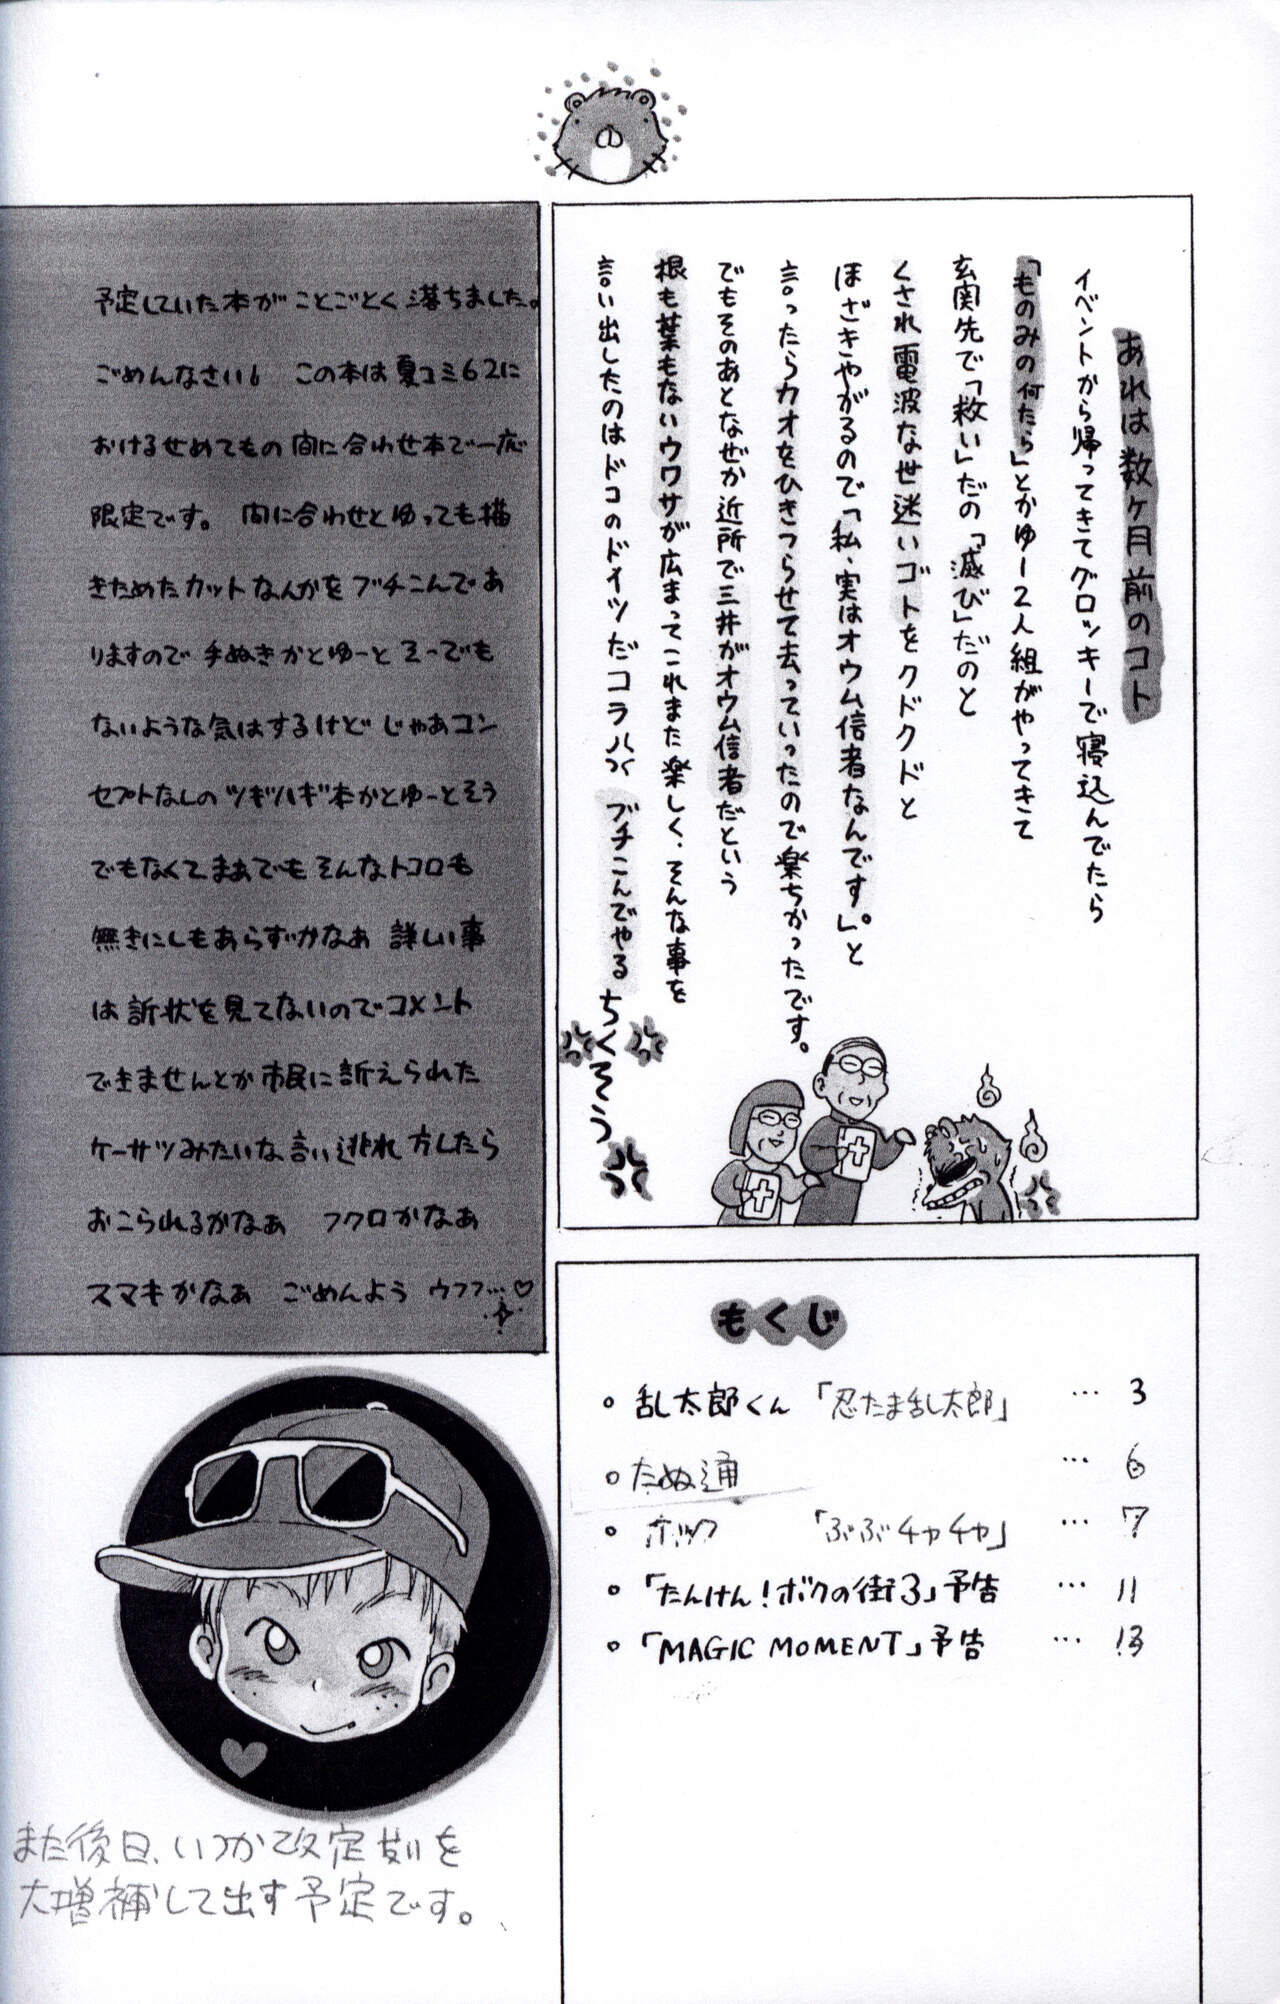 あれは数ヶ月前のコト
イベントから帰ってきてグロッキーで寝込んでたら
「ものみの何たら」とかゆー2人組がやってきて
玄関先で「救い」だの「滅び」だのと
くされ電波な世迷いゴトをクドクドと
ほざきやがるので「私、実はオウム信者なんです」。と
言ったらカオをひきつらせて去っていったので楽ちかったです。
でもそのあとなぜか近所で三井がオウム信者だという
根も葉もないウワサが広まってこれまた楽しく、そんな事を
言い出したのはドコのドイツだコラ ブチこんでやる ちくそう
予定していた本が ことごとく落ちました。
ごめんなさい この本は夏コミ62に
おけるせめてもの間に合わせ本で一応
限定です。 間に合わせとゆっても描
きためたカットなんかをブチこんであ
りますので手ぬきかとゆーとそーでも
ないような気はするけどじゃあコン
セプトなしのツギハギ本かとゆーとそう
でもなくてまぁでもそんなトコロも
無きにしもあらずかなぁ 詳しい事
は訴状を見てないのでコメント
できませんとか市民に訴えられた
ケーサツみたいな言い逃れ方したら
おこられるかなぁ フクロかなぁ
スマキかなぁ ごめんよう ウフフ…♡
もくじ
乱太郎くん 「忍たま乱太郎」 … 3
たぬ通 … 6
ホック 「ぶぶチャチャ」 … 7
「たんけん！ボクの街3」予告 … 11
「MAGIC MOMENT」予告 … 13
また後日、いつか改定刻を
大増補して出す予定です。